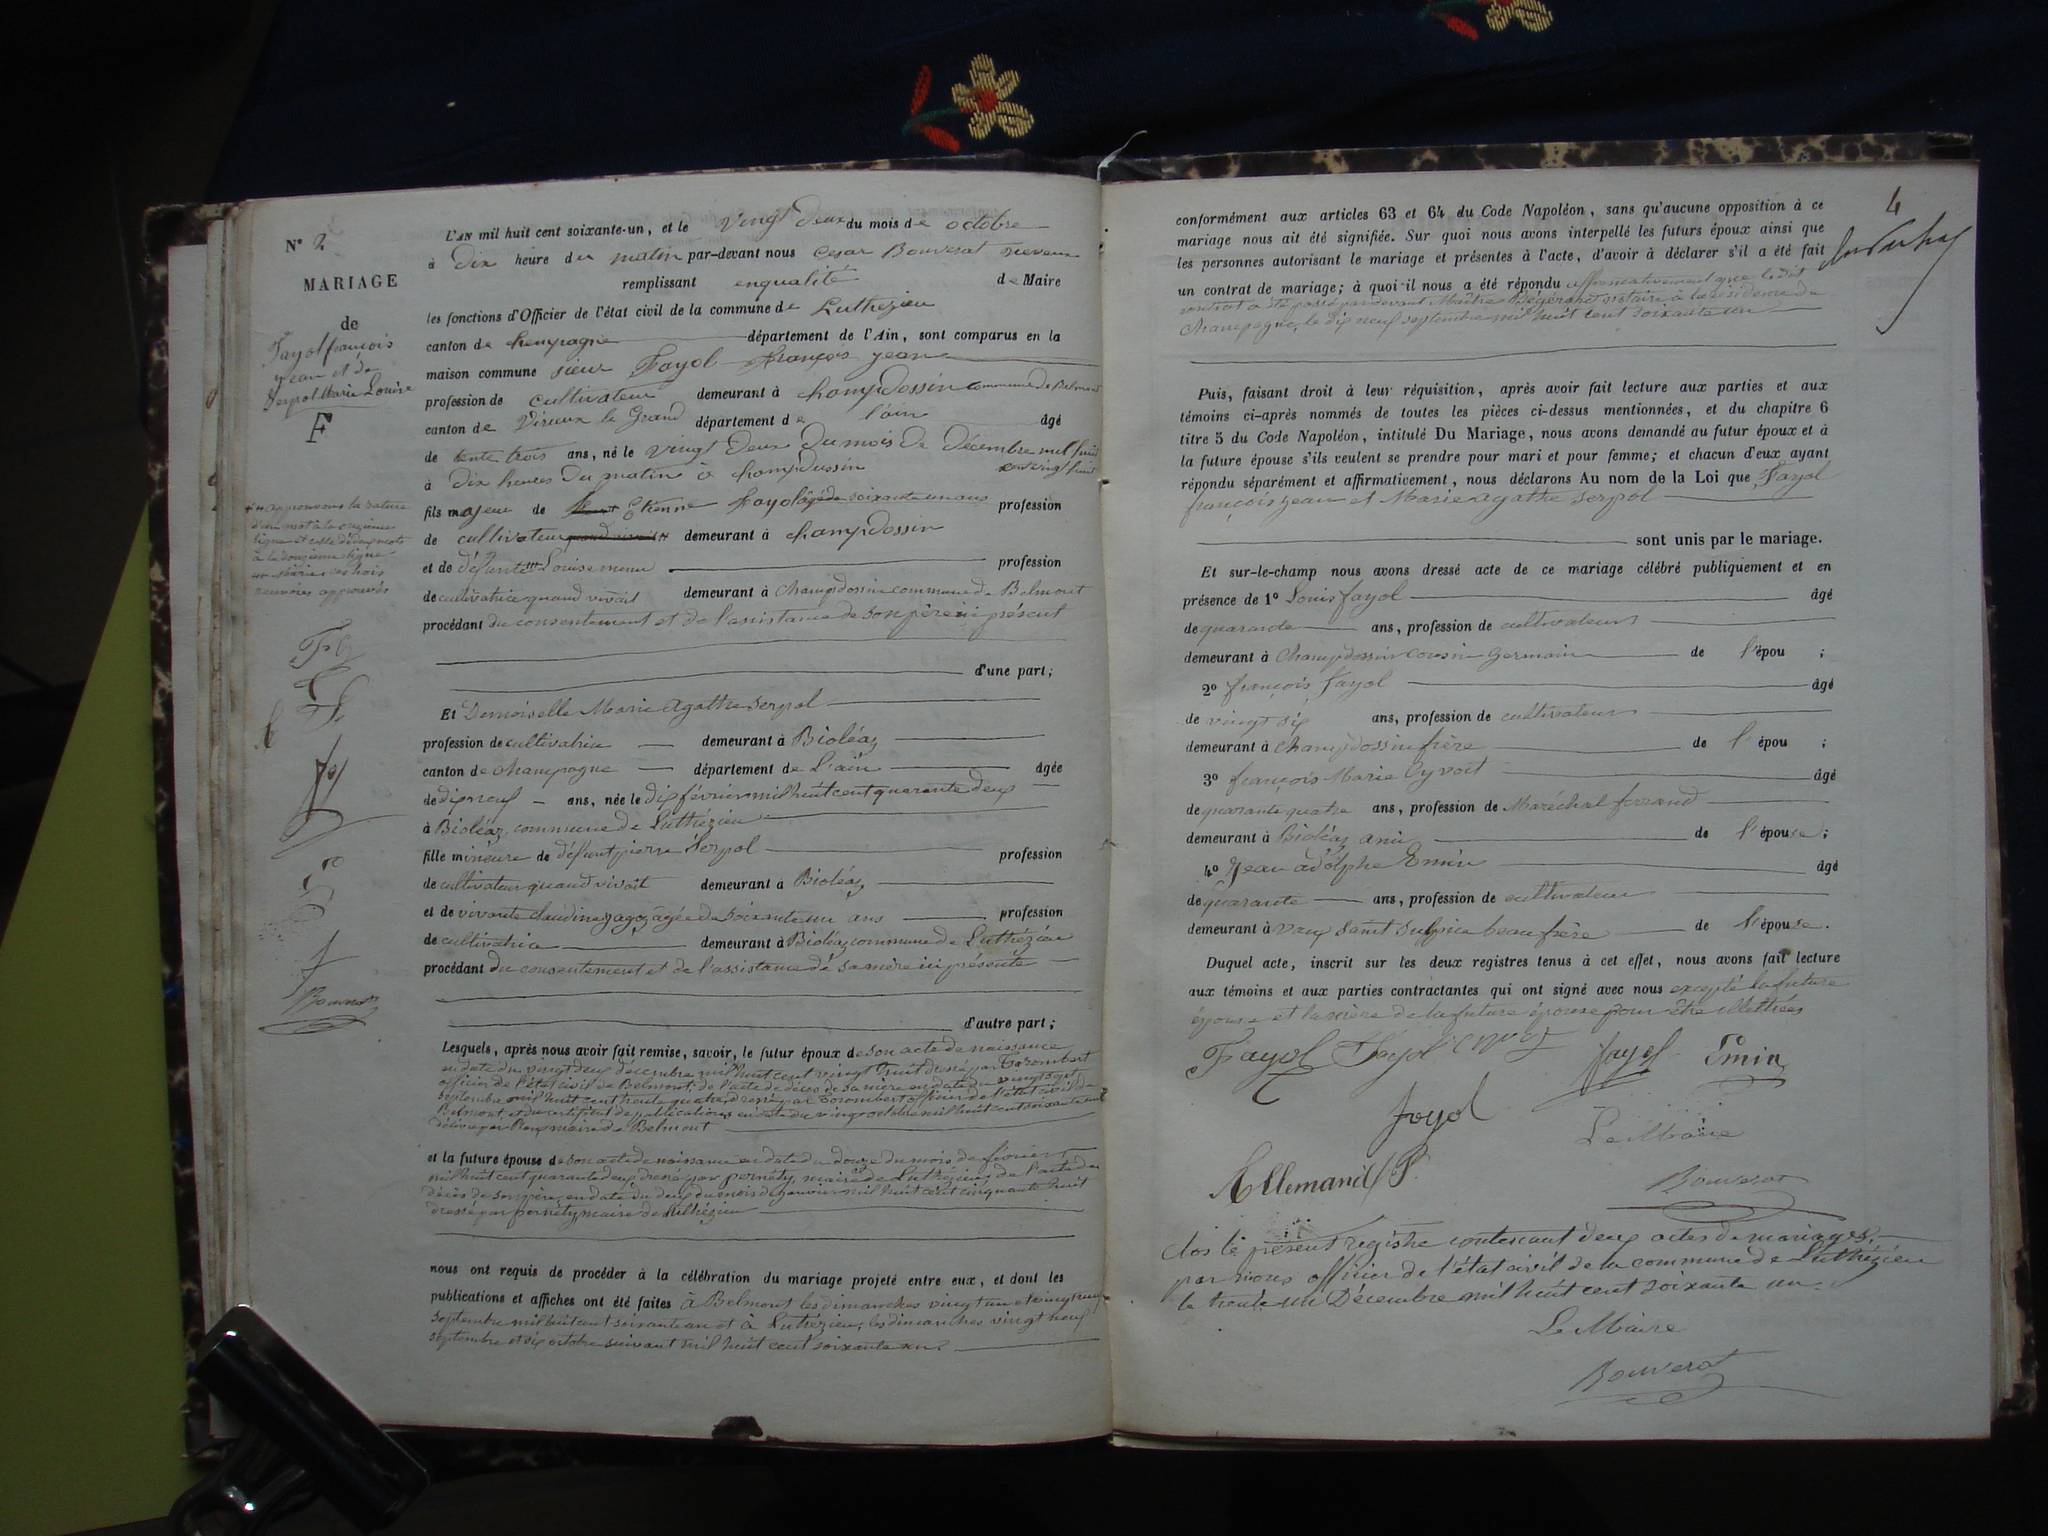 N° 2
MARIAGE
de
Fayol françois
jean et de
Serpol Marie Louise
F
approuvons la rature
d'un mot à la onzième
ligne et celle de deux mots
à la douzième ligne
Marie ces trois
renvoies approuvés
Bouverat
L'AN mil huit cent soixante-un, et le vingt deux du mois de octobre
à Dix heure du matin par-devant nous Cesar Bouverat
remplissant enqualité de Maire
les fonctions d'Officier de l'état civil de la commune de Luthezieu
canton de Champagne département de l'Ain, sont comparus en la
maison commune sieur Fayol françois jean
profession de cultivateur demeurant à Champdossin commune de Belmont
canton de Virieux le Grand département de l'ain âgé
de trente trois ans, né le vingt Deux du mois de Décembre mil huit
cent vingt huit
à Dix heures du matin à Champdossin
fils majeur de Etienne Fayol âgé de soixante un ans profession
de cultivateur demeurant à Champdossin
et de défunte Louise profession
de cultivatrice quand vivait demeurant à Champdossin commune de Belmont
procédant du consentement et de l'assistance de son père ici présent
d'une part;
Et Demoiselle Marie agathe Serpol
profession de cultivatrice demeurant à Bioléaz
canton de Champagne département de L'ain âgée
de dix neuf ans, née le dix février mil huit cent quarante deux
à Bioléaz, commune de Luthezieu
fille mineure de défunt pierre Serpol profession
de cultivateur quand vivait demeurant à Bioléaz
et de vivante Claudine agée de soixante un ans profession
de cultivatrice demeurant à Bioléaz commune de Luthézieu
procédant du consentement et de l'assistance de sa mère ici présente
d'autre part;
Lesquels, après nous avoir fait remise, savoir, le futur époux de son acte de naissance
en date du vingt deux décembre mil huit cent vingt huit dressé par Corombert
officier de l'état civil de Belmont, de l'acte de décès de sa mère en date du vingt sept
septembre mil huit cent trente quatre, dressé par Corombert officier de l'état civil de
Belmont et du certificat de publications en date du vingt octobre mil huit cent soixante un
délivré par maire de Belmont
et la future épouse de son acte de naissance en date du douze du mois de février
mil huit cent quarante deux dressé par pernéty, maire de Luthézieu, de l'acte de
décès de son père, en date du deux du mois de janvier mil huit cent cinquante huit
dressé par pernéty maire de Luthézieu
nous ont requis de procéder à la célébration du mariage projeté entre eux, et dont les
publications et affiches ont été faites à Belmont les dimanches vingt un et vingt neuf
septembre mil huit cent soixante un et à Luthézieu, les dimanches vingt neuf
septembre et six octobre suivant mil huit cent soixante un.
4
conformément aux articles 63 et 64 du Code Napoléon, sans qu'aucune opposition à ce
mariage nous ait été signifiée. Sur quoi nous avons interpellé les futurs époux ainsi que
les personnes autorisant le mariage et présentes à l'acte, d'avoir à déclarer s'il a été fait
un contrat de mariage; à quoi il nous a été répondu affirmativement que le dit
contrat a été passé par devant Maître notaire à la résidence de
Champagne, le dix neuf septembre mil huit cent soixante un
Puis, faisant droit à leur réquisition, après avoir fait lecture aux parties et aux
témoins ci-après nommés de toutes les pièces ci-dessus mentionnées, et du chapitre 6
titre 5 du Code Napoléon, intitulé Du Mariage, nous avons demandé au futur époux et à
la future épouse s'ils veulent se prendre pour mari et pour femme; et chacun d'eux ayant
répondu séparément et affirmativement, nous déclarons Au nom de la Loi que Fayol
françois jean et Marie agathe Serpol
sont unis par le mariage.
Et sur-le-champ nous avons dressé acte de ce mariage célébré publiquement et en
présence de 1° Louis fayol âgé
de quarante ans, profession de cultivateur
demeurant à Champdossin cousin germain de l'épou ;
2° françois fayol âgé
de vingt six ans, profession de cultivateur
demeurant à Champdossin frère de l'épou ;
3° françois Marie Cyvoct âgé
de quarante quatre ans, profession de Maréchal ferrand
demeurant à Bioléaz ami de l'épouse;
4° Jean adolphe Emin âgé
de quarante ans, profession de cultivateur
demeurant à vaux saint Sulpice beau frère de l'épouse.
Duquel acte, inscrit sur les deux registres tenus à cet effet, nous avons fait lecture
aux témoins et aux parties contractantes qui ont signé avec nous excepté la future
épouse et la mère de la future épouse pour être illettrées
Fayol Fayol fayol Emin
fayol
Le Maire
Allemand P.
Bouverat
Clos le présent registre contenant deux actes de mariages,
par nous officier de l'état civil de la commune de Luthézieu
le trente un Décembre mil huit cent soixante un.
Le Maire
Bouverat